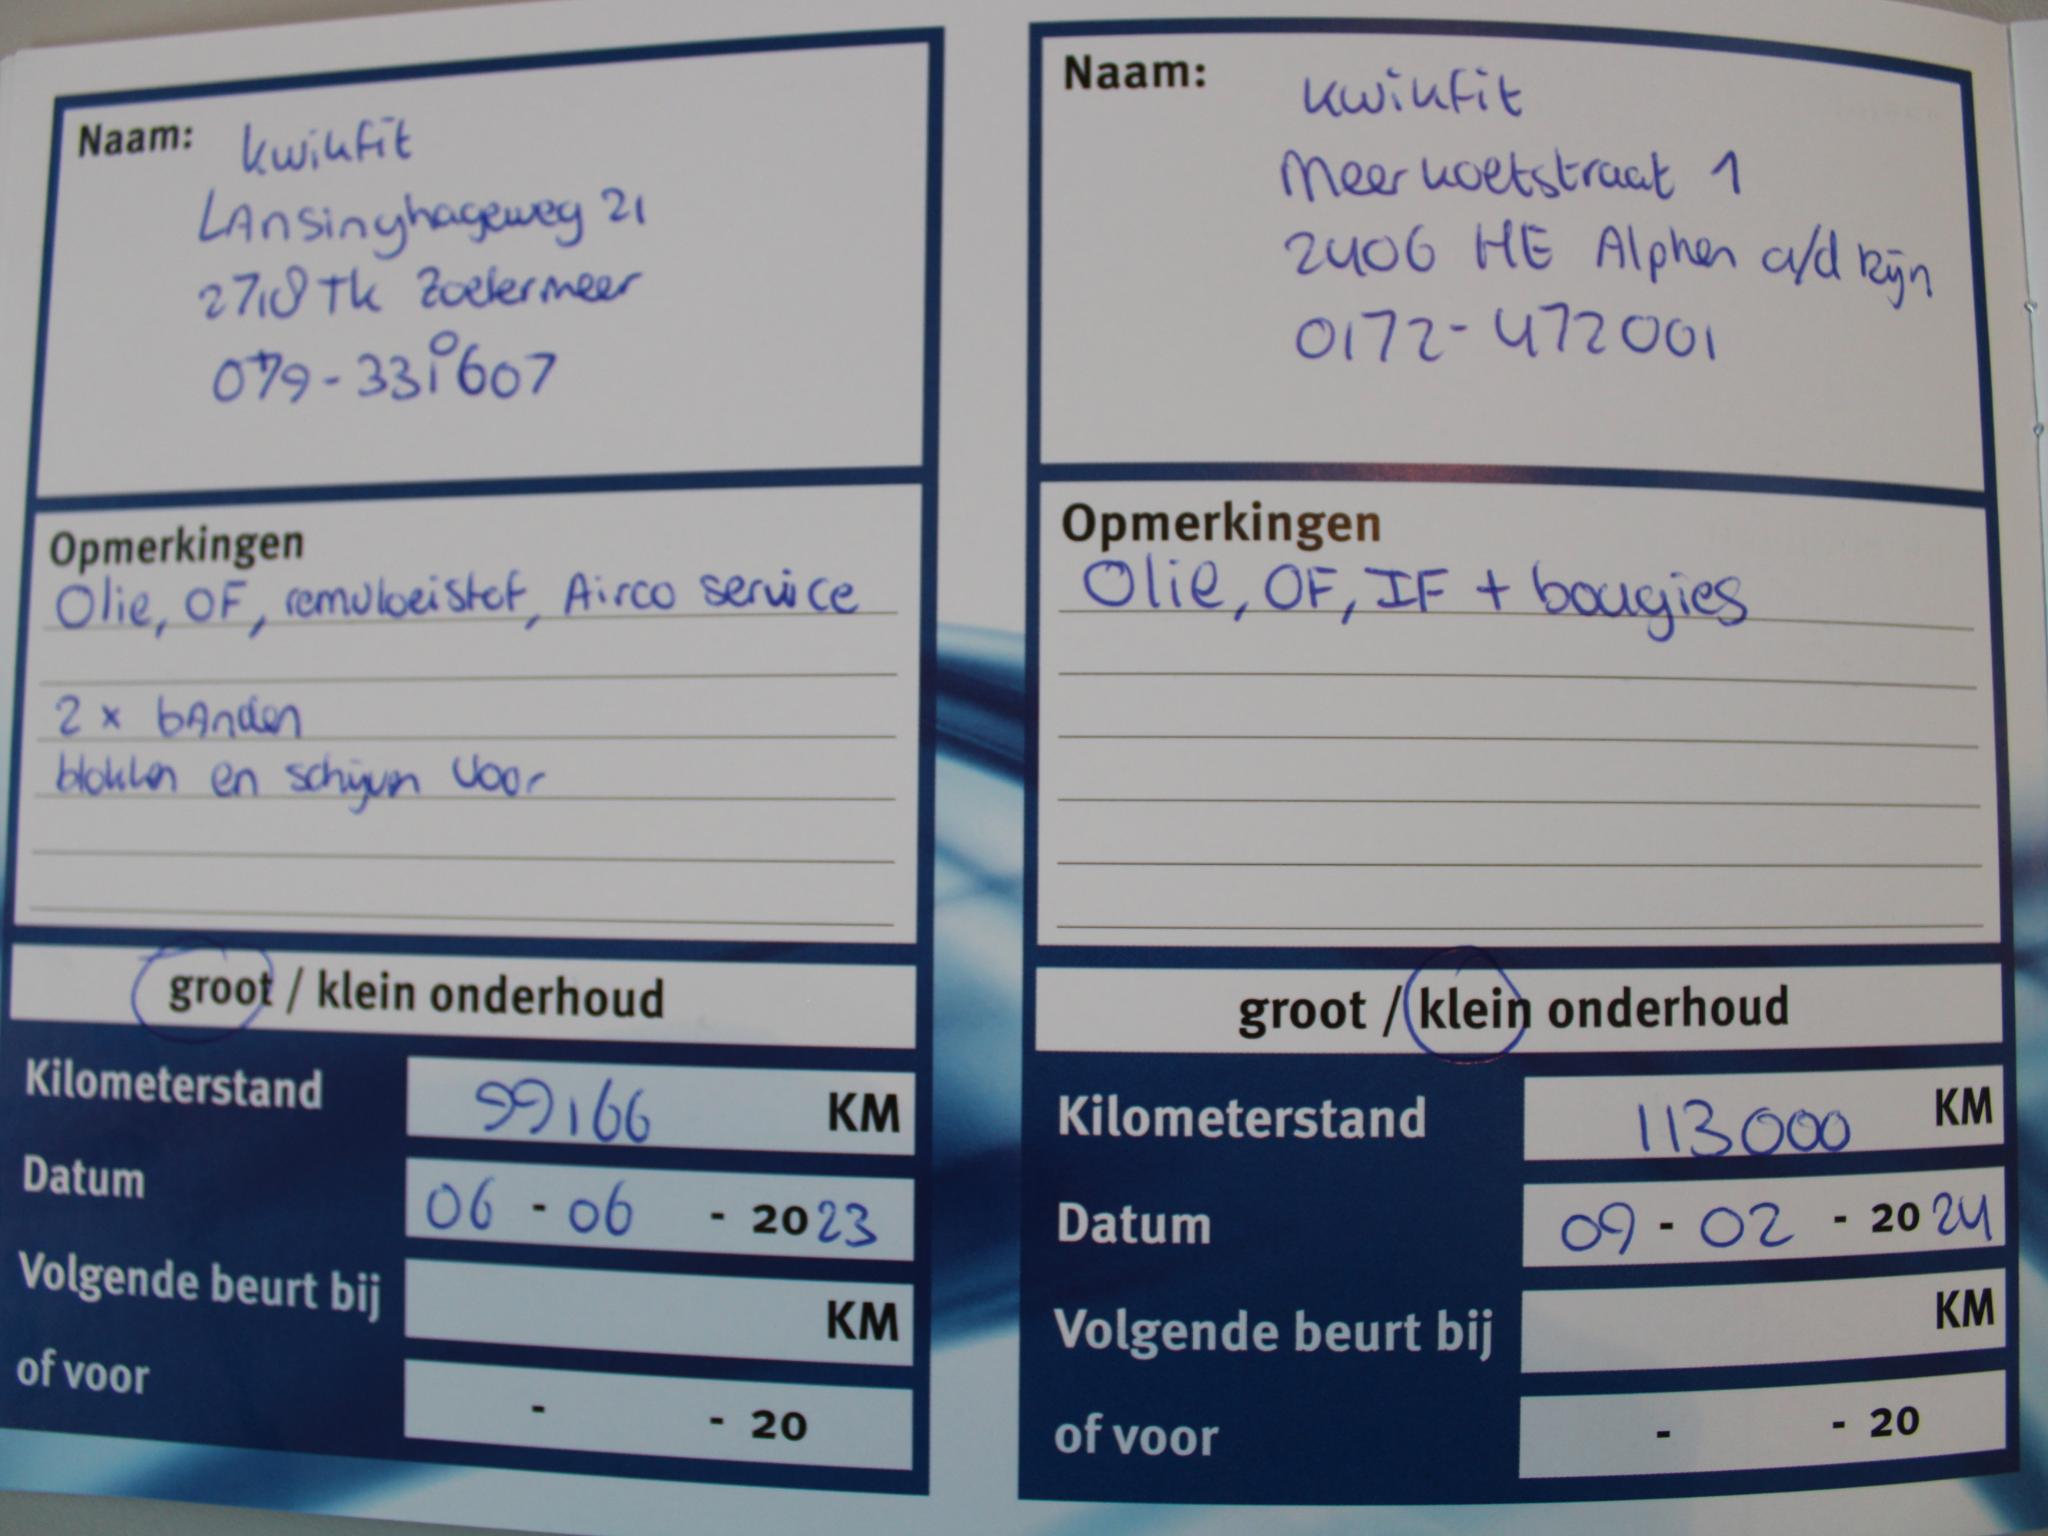 Naam: Kwikfit
Lansinghageweg 21
2718 TK Zoetermeer
079-3310607
Opmerkingen
Olie, OF, remvloeistof, Airco service
2 x banden
blokken en schijven voor
groot / klein onderhoud
Kilometerstand 99166 KM
Datum 06 - 06 - 2023
Volgende beurt bij KM
of voor - - 20
Naam: Kwikfit
Meerkoetstraat 1
2406 HE Alphen a/d Rijn
0172-472001
Opmerkingen
Olie, OF, IF + bougies
groot / klein onderhoud
Kilometerstand 113000 KM
Datum 09 - 02 - 2024
Volgende beurt bij KM
of voor - - 20